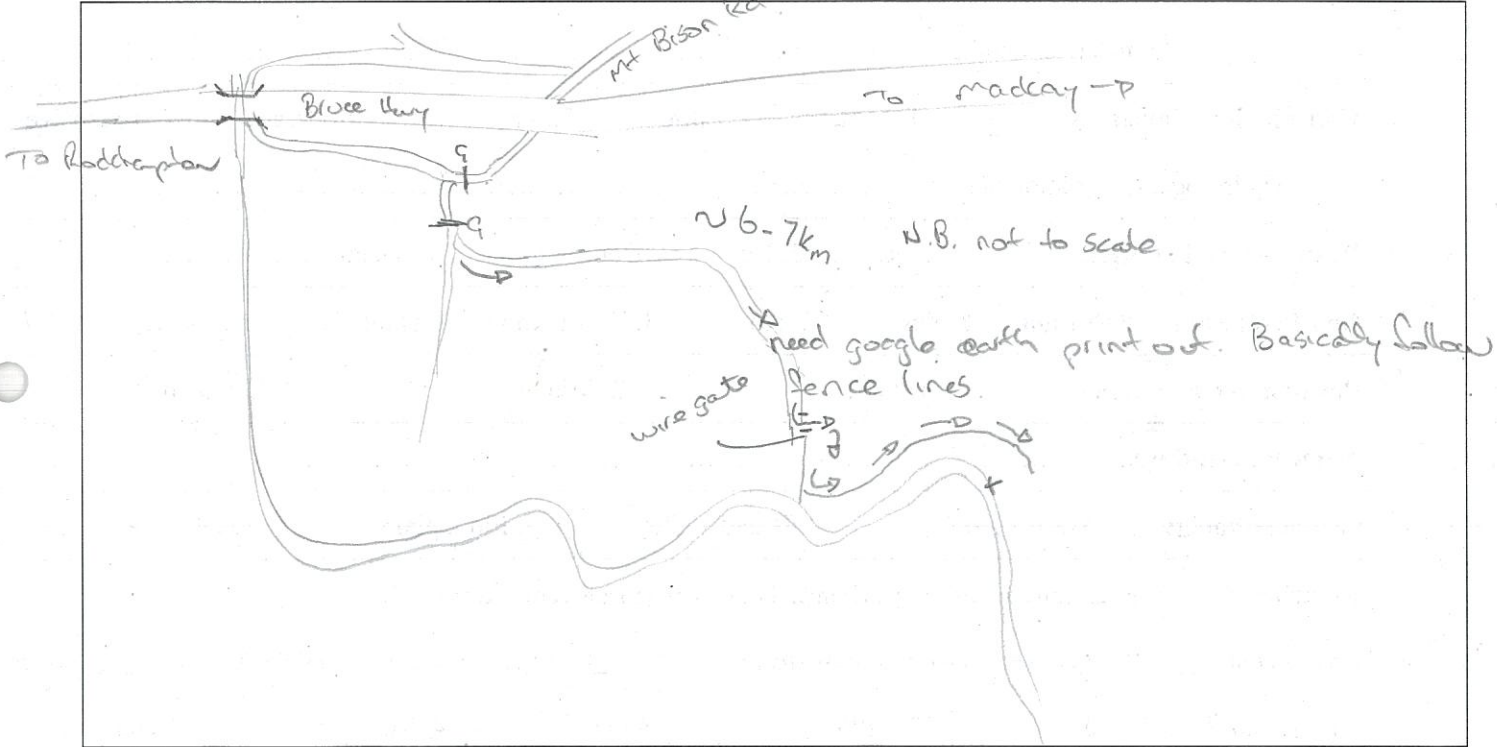 Mt Bison Rd
To Mackay
Bruce Hwy
To Rockhampton
G
G
~ 6-7km
N.B. not to scale.
need google earth print out. Basically follow
fence lines
wire gate